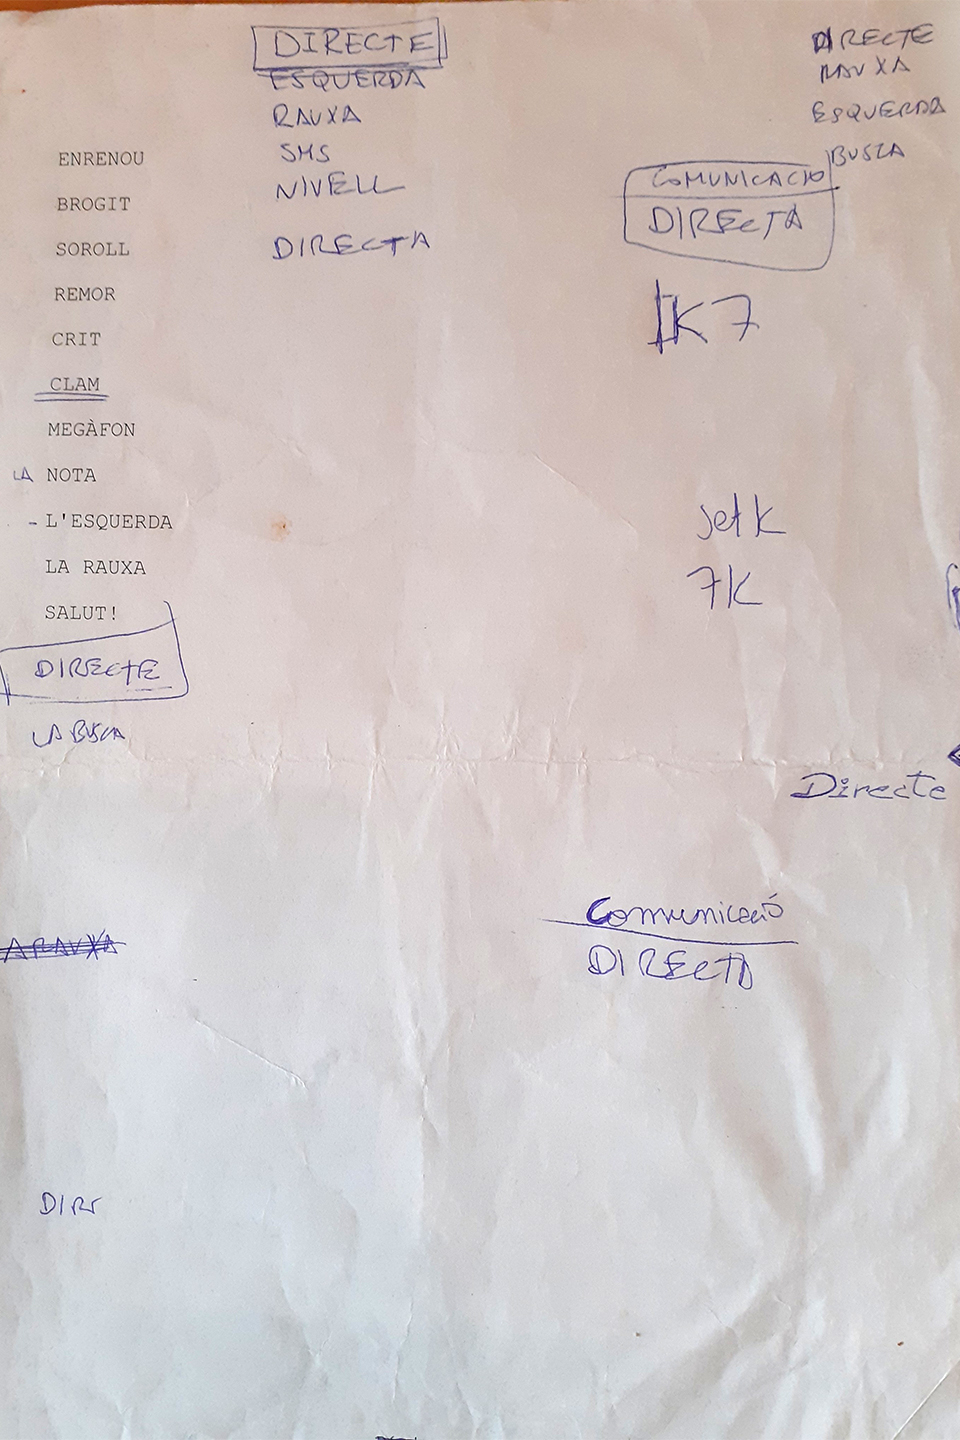 DIRECTE
ESQUERDA
RAUXA
SMS
NIVELL
DIRECTA
DIRECTE
RAUXA
ESQUERDA
BUSCA
COMUNICACIO
DIRECTA
K7
Jet K
7K
ENRENOU
BROGIT
SOROLL
REMOR
CRIT
CLAM
MEGÀFON
LA NOTA
- L'ESQUERDA
LA RAUXA
SALUT!
DIRECTE
LA BUSCA
Directe
Comunicació
DIRECTA
ARAUXA
DIR